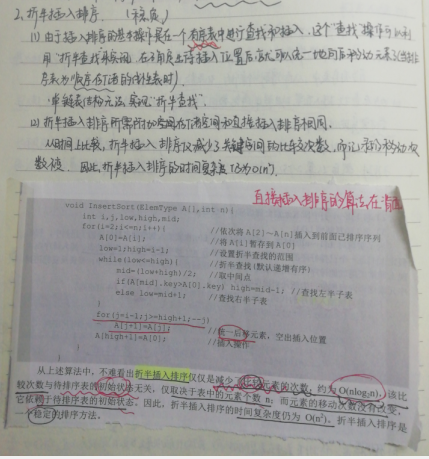 2.折半插入排序.
(1)由于插入排序的基本操作是在一个有序表中进行查找和插入,这个"查找"操作可以利
用"折半查找"来实现,在确定出待插入位置后,
单链表结构无法实现"折半查找".
(2)折半插入排序所需附加空间和直接插入排序相同.
从时间上比较,折半插入排序仅减少了关键字间的比较次数,而记录的移动次
数不变. 因此,折半插入排序的时间复杂度仍为O(n²).
直接插入排序的算法在背面
void InsertSort(ElemType A[],int n){
int i,j,low,high,mid;
for(i=2;i<=n;i++){ //依次将A[2]~A[n]插入到前面已排序序列
A[0]=A[i]; //将A[i]暂存到A[0]
low=1;high=i-1; //设置折半查找的范围
while(low<=high){ //折半查找(默认递增有序)
mid=(low+high)/2; //取中间点
if(A[mid].key>A[0].key) high=mid-1; //查找左半子表
else low=mid+1; //查找右半子表
}
for(j=i-1;j>=high+1;--j)
A[j+1]=A[j]; //统一后移元素,空出插入位置
A[high+1]=A[0]; //插入操作
}
从上述算法中,不难看出折半插入排序仅仅是减少了比较元素的次数,约为O(nlog₂n),该比
较次数与待排序表的初始状态无关,仅取决于表中的元素个数n;而元素的移动次数没有改变,
它依赖于待排序表的初始状态。因此,折半插入排序的时间复杂度仍为O(n²)。折半插入排序是
稳定的排序方法。